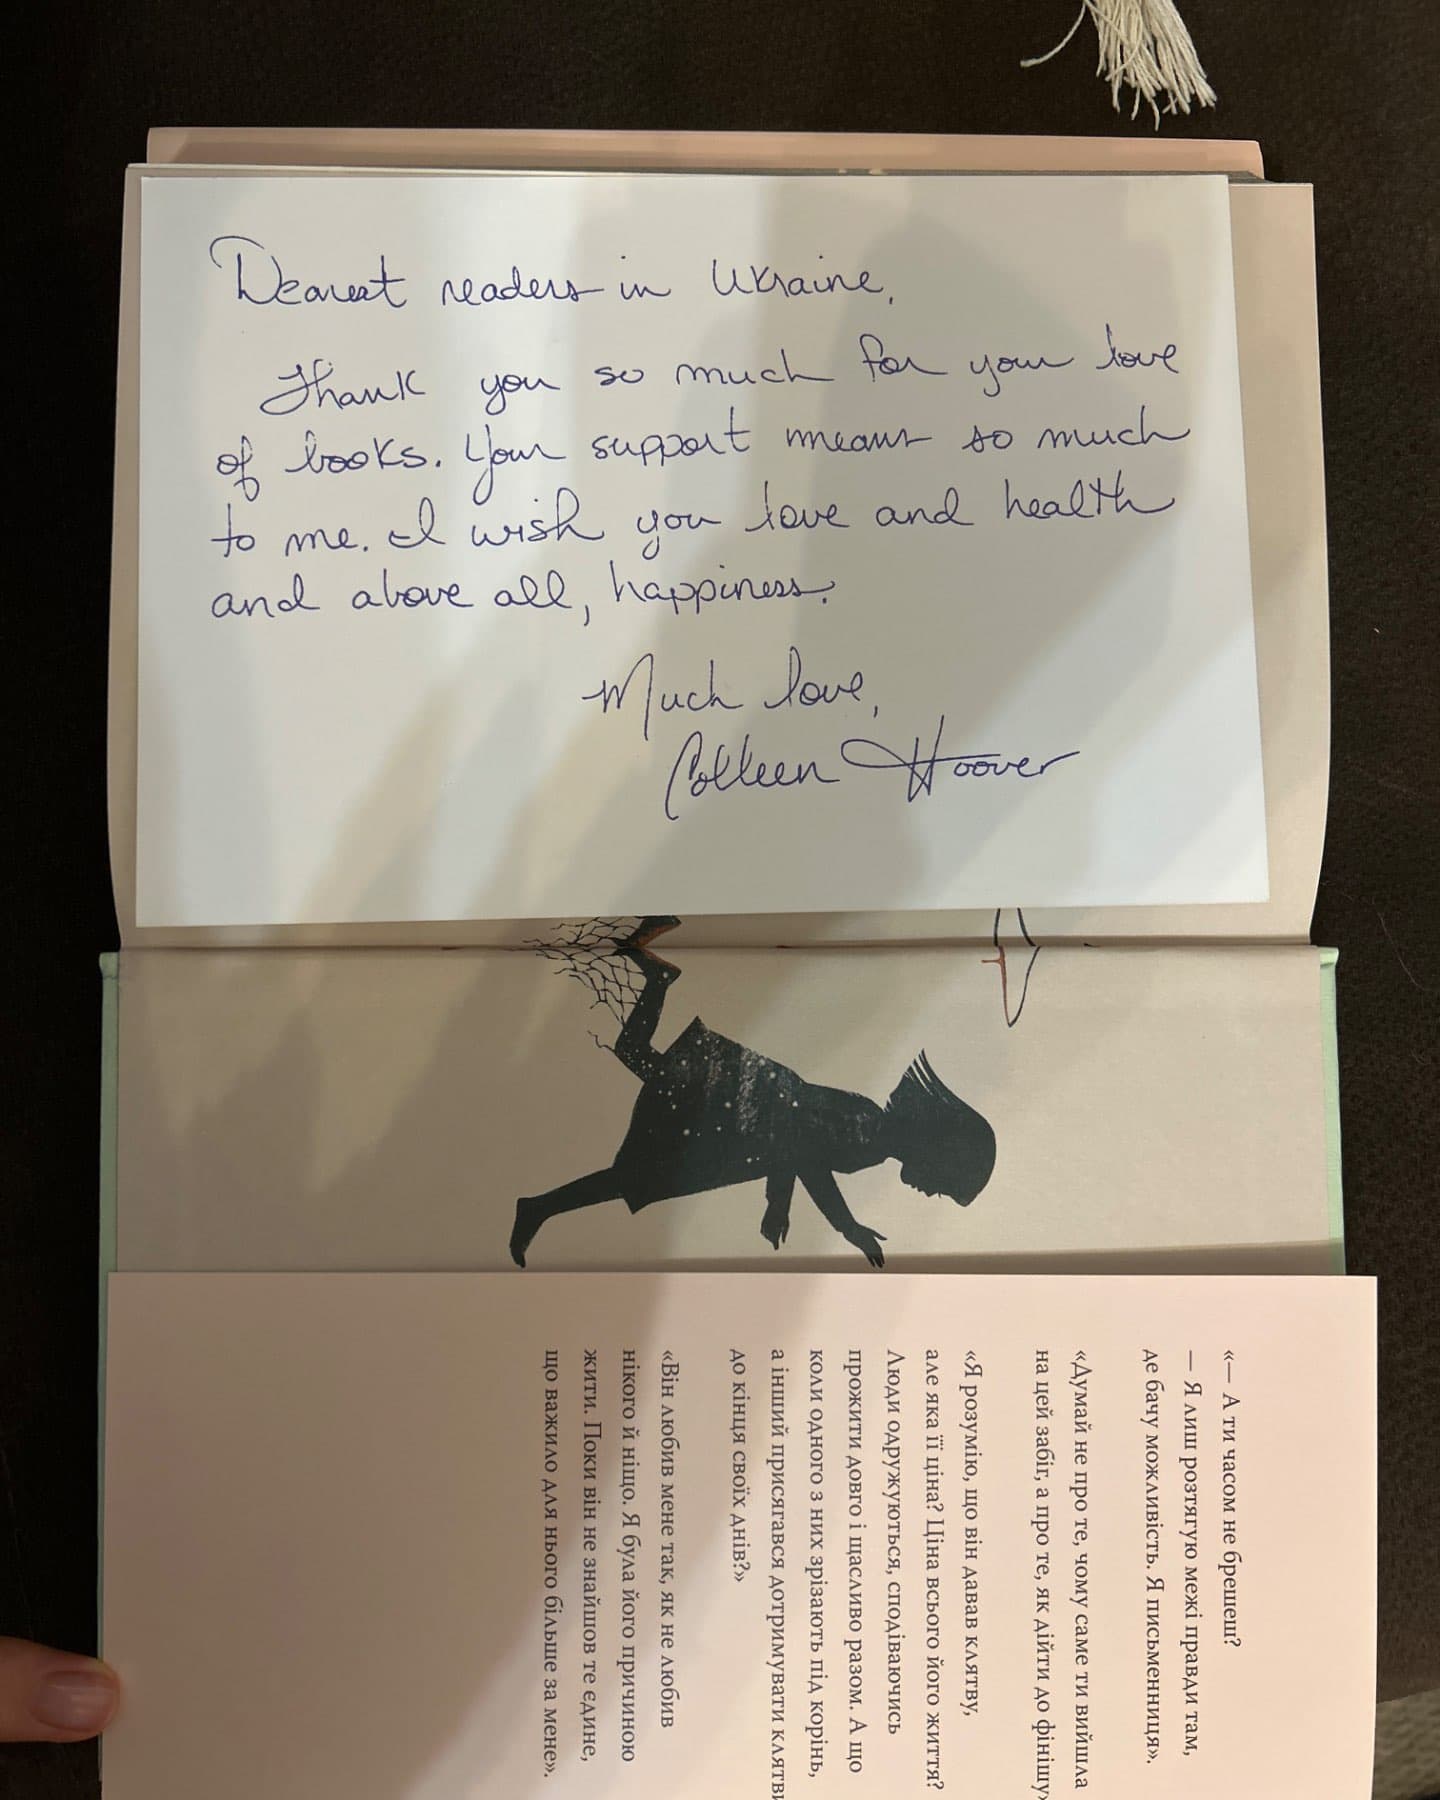 Dearest readers in Ukraine,
Thank you so much for your love
of books. Your support means so much
to me. I wish you love and health
and above all, happiness.
Much love,
Colleen Hoover
«— А ти часом не брешеш?
— Я лиш розтягую межі правди там,
де бачу можливість. Я письменниця».
«Думай не про те, чому саме ти вийшла
на цей забіг, а про те, як дійти до фінішу»
«Я розумію, що він давав клятву,
але яка її ціна? Ціна всього його життя?
Люди одружуються, сподіваючись
прожити довго і щасливо разом. А що
коли одного з них зрізають під корінь,
а інший присягався дотримувати клятви
до кінця своїх днів?»
«Він любив мене так, як не любив
нікого й ніщо. Я була його причиною
жити. Поки він не знайшов те єдине,
що важило для нього більше за мене».